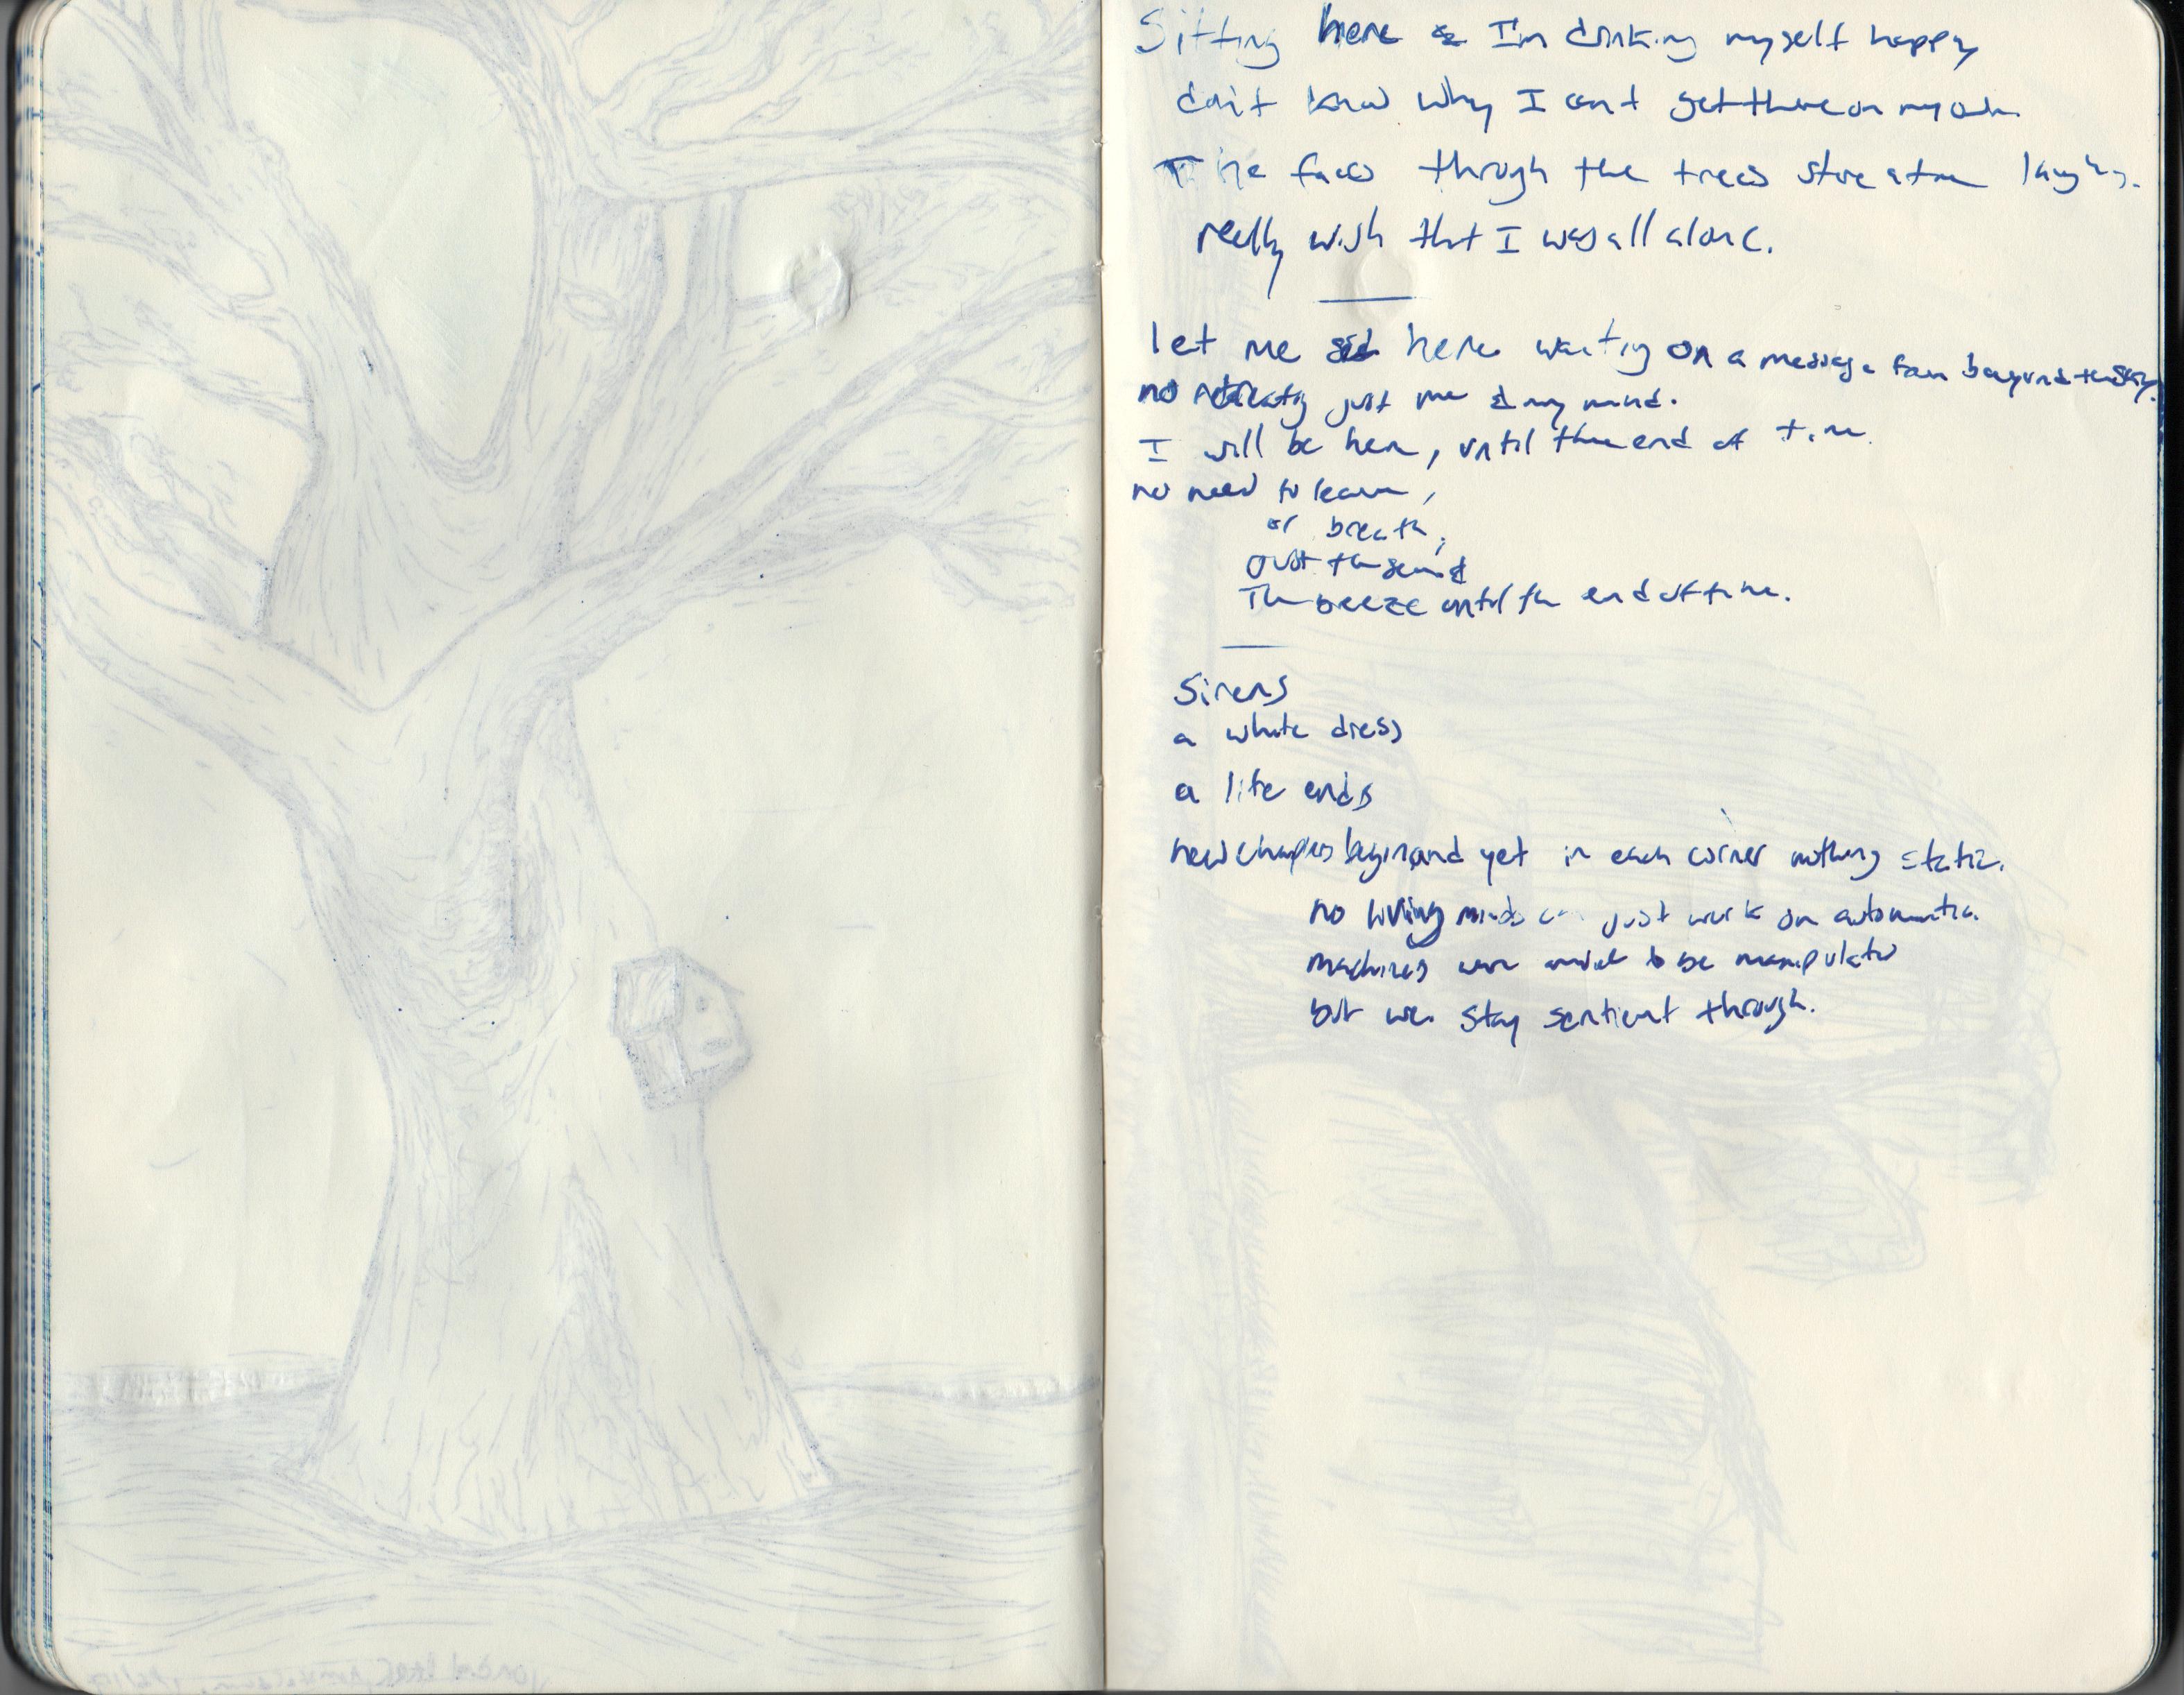 Sitting here & I'm drinking myself happy
don't know why I can't get there on my own.
The faces through the trees stare at me laughing.
really wish that I was all alone.
let me sit here waiting on a message from beyond the sky.
no just me & my mind.
I will be here, until the end of time.
no need to leave,
or breath,
just the sound
The breeze until the end of time.
Sirens
a white dress
a life ends
new chapters begin, and yet in each corner nothing static.
no living minds can just work on automatic.
machines were made to be manipulated
but we stay sentient through.